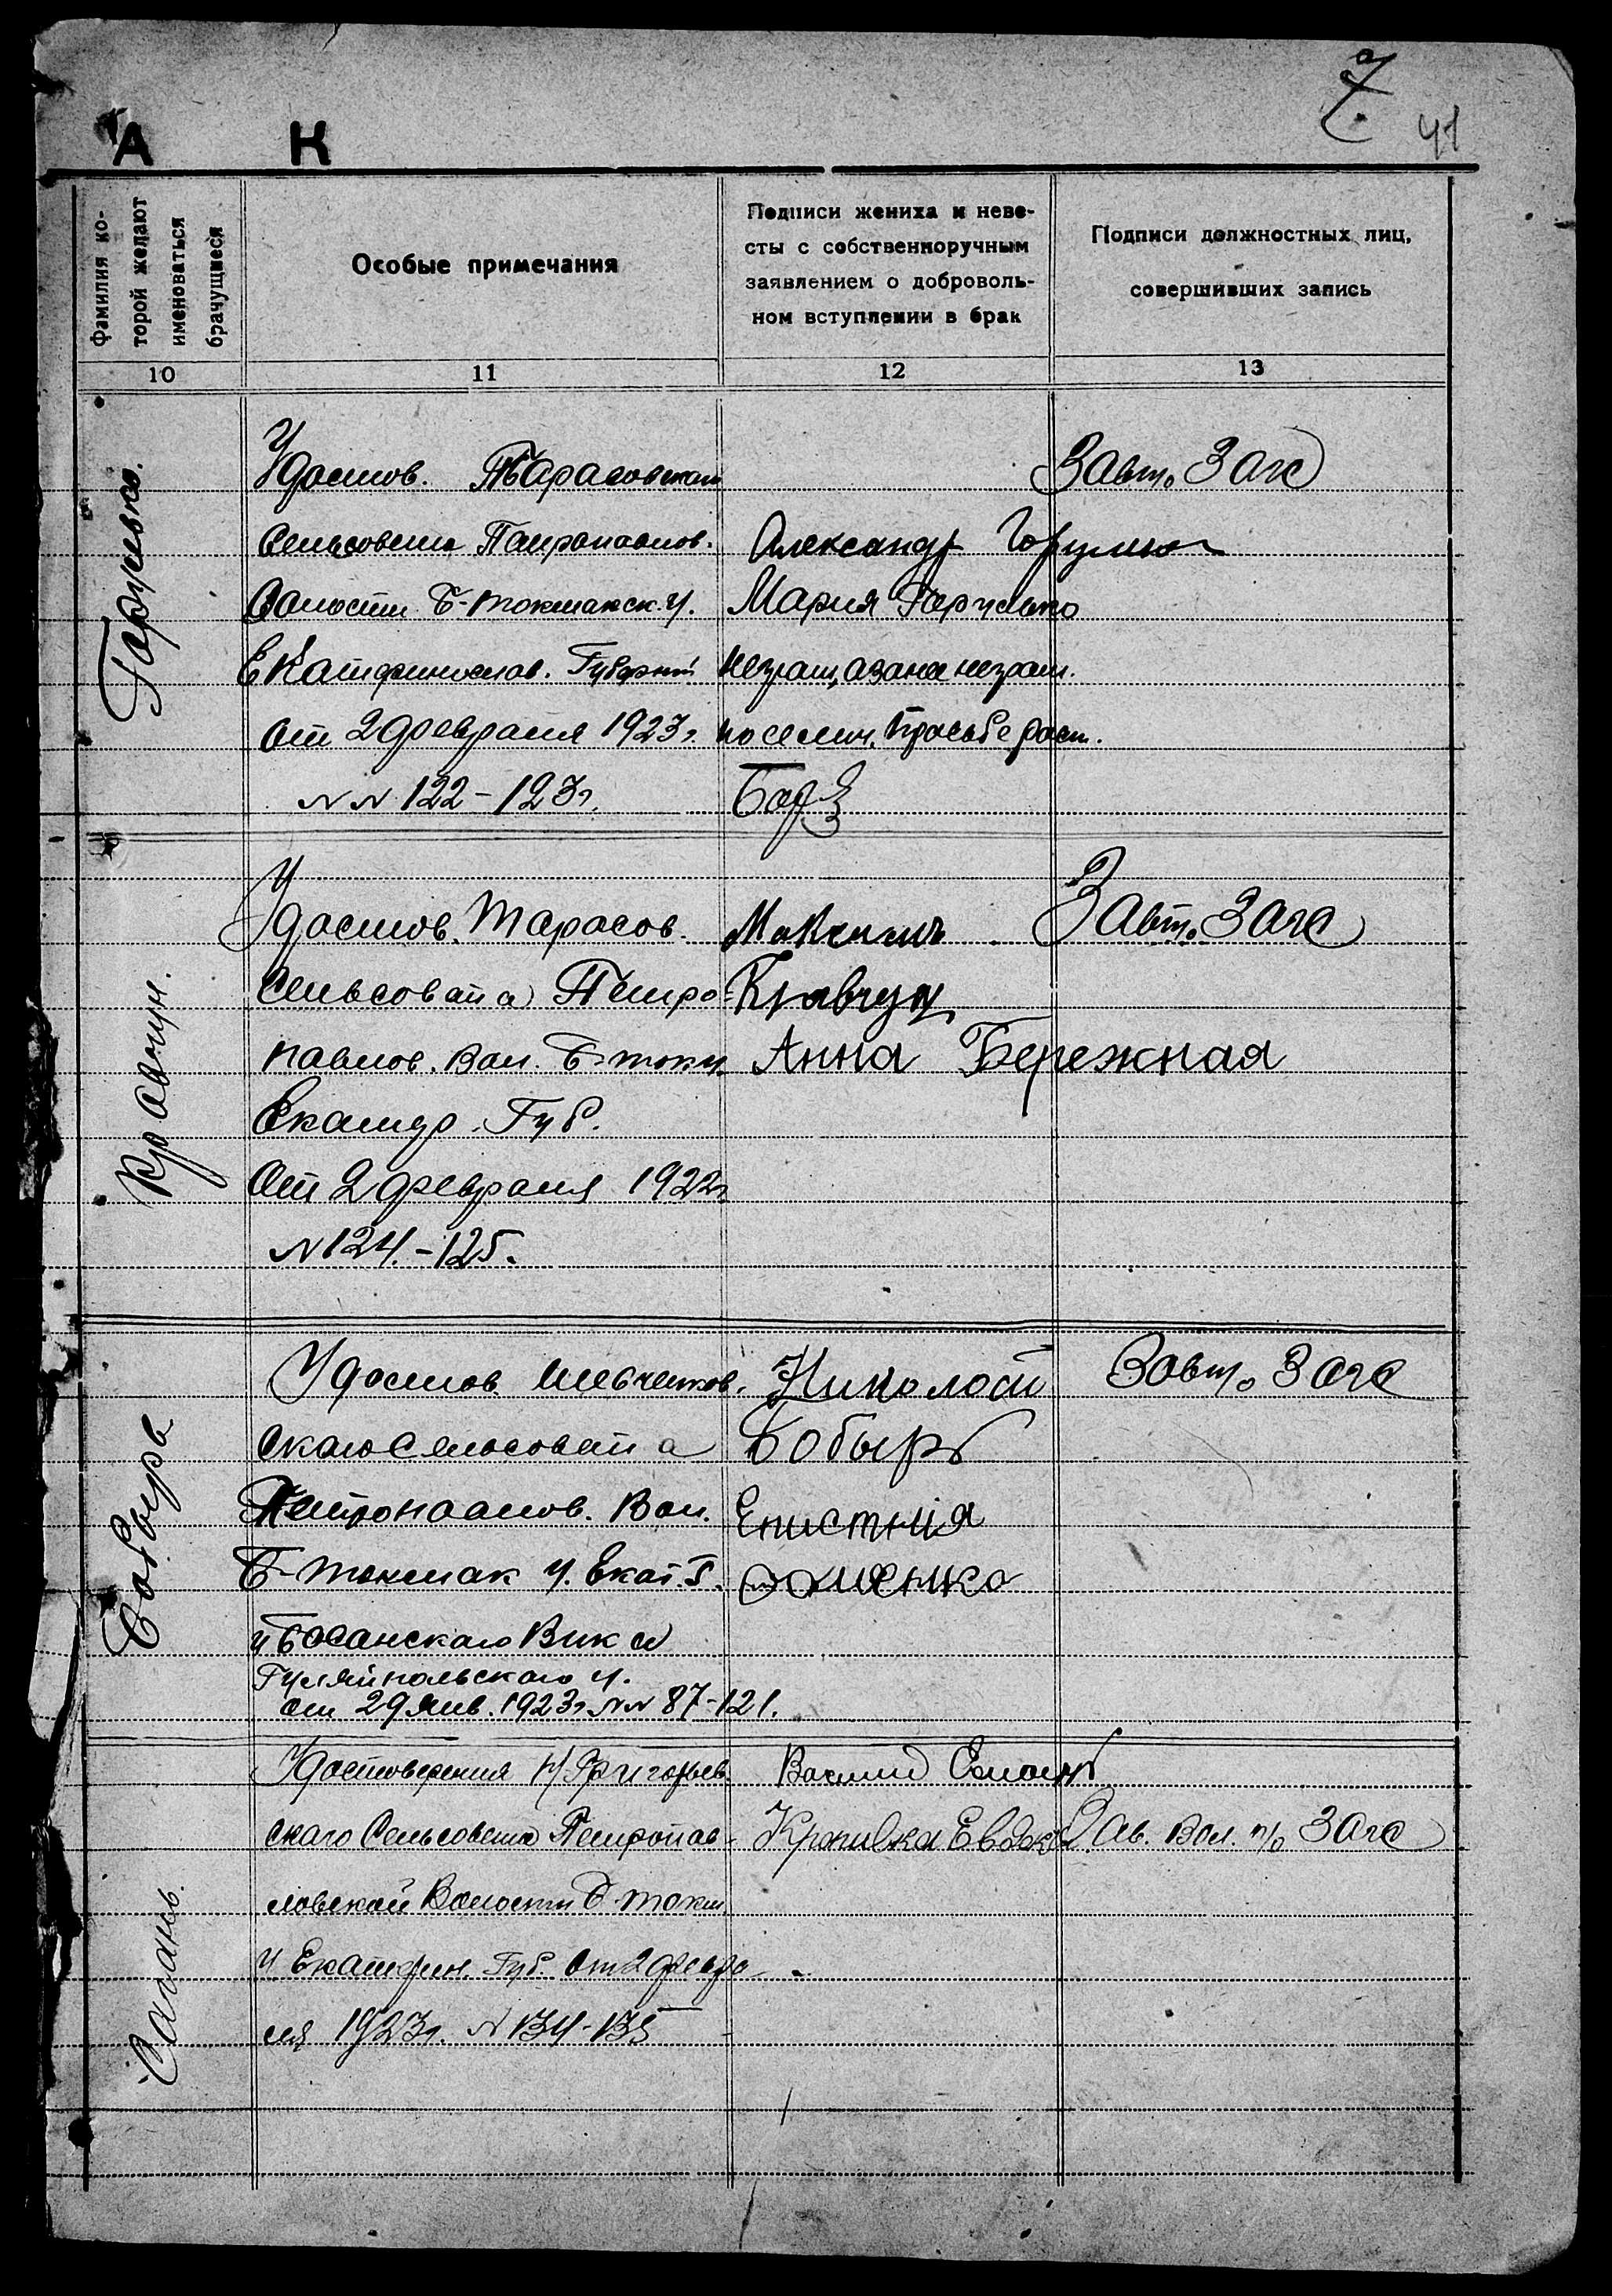 А К
7
41
Фамилия ко-
торой желают
именоваться
брачущиеся
Особые примечания
Подписи жениха и неве-
сты с собственноручным
заявлением о доброволь-
ном вступлении в брак
Подписи должностных лиц,
совершивших запись
10
11
12
13
Удостов. Тарасовскаго
Сельсовета Петропавлов.
Волости Б-токмакск. у.
Екатеринослав. Губернии
от 2 февраля 1923 г.
№№ 122-123 г.
Александр
Мария
неграм.
просьбе расп.
Завпт. Загс
Кравчун.
Удостов. Тарасов.
Сельсовета Петро-
павлов. Вол. Б-ток у.
Екатер. Губ.
от 2 февраля 1922 г.
№ 124.-125.
Максимъ
Кравчун
Анна Бережная
Завпт. Загс
Бобырь
Удостов. Шевченков.
скаго Сельсовета
Петропавлов. Вол.
Б-токмак у. Екат. Г.
и Басанскаго Вик а
Гуляйпольскаго у.
от 29 янв. 1923 г. №№ 87-121.
Николай
Бобырь
Епистнія
Завпт. Загс
Саганъ.
Удостоверения Н/Григорьев
скаго Сельсовета Петропав-
ловской Волости Б-токм
у Екатерин. Губ. от 2 февра
ля 1923 г. № 134-135
Василий
Кропивка Евдок
Зав. Вол. п/о Загс